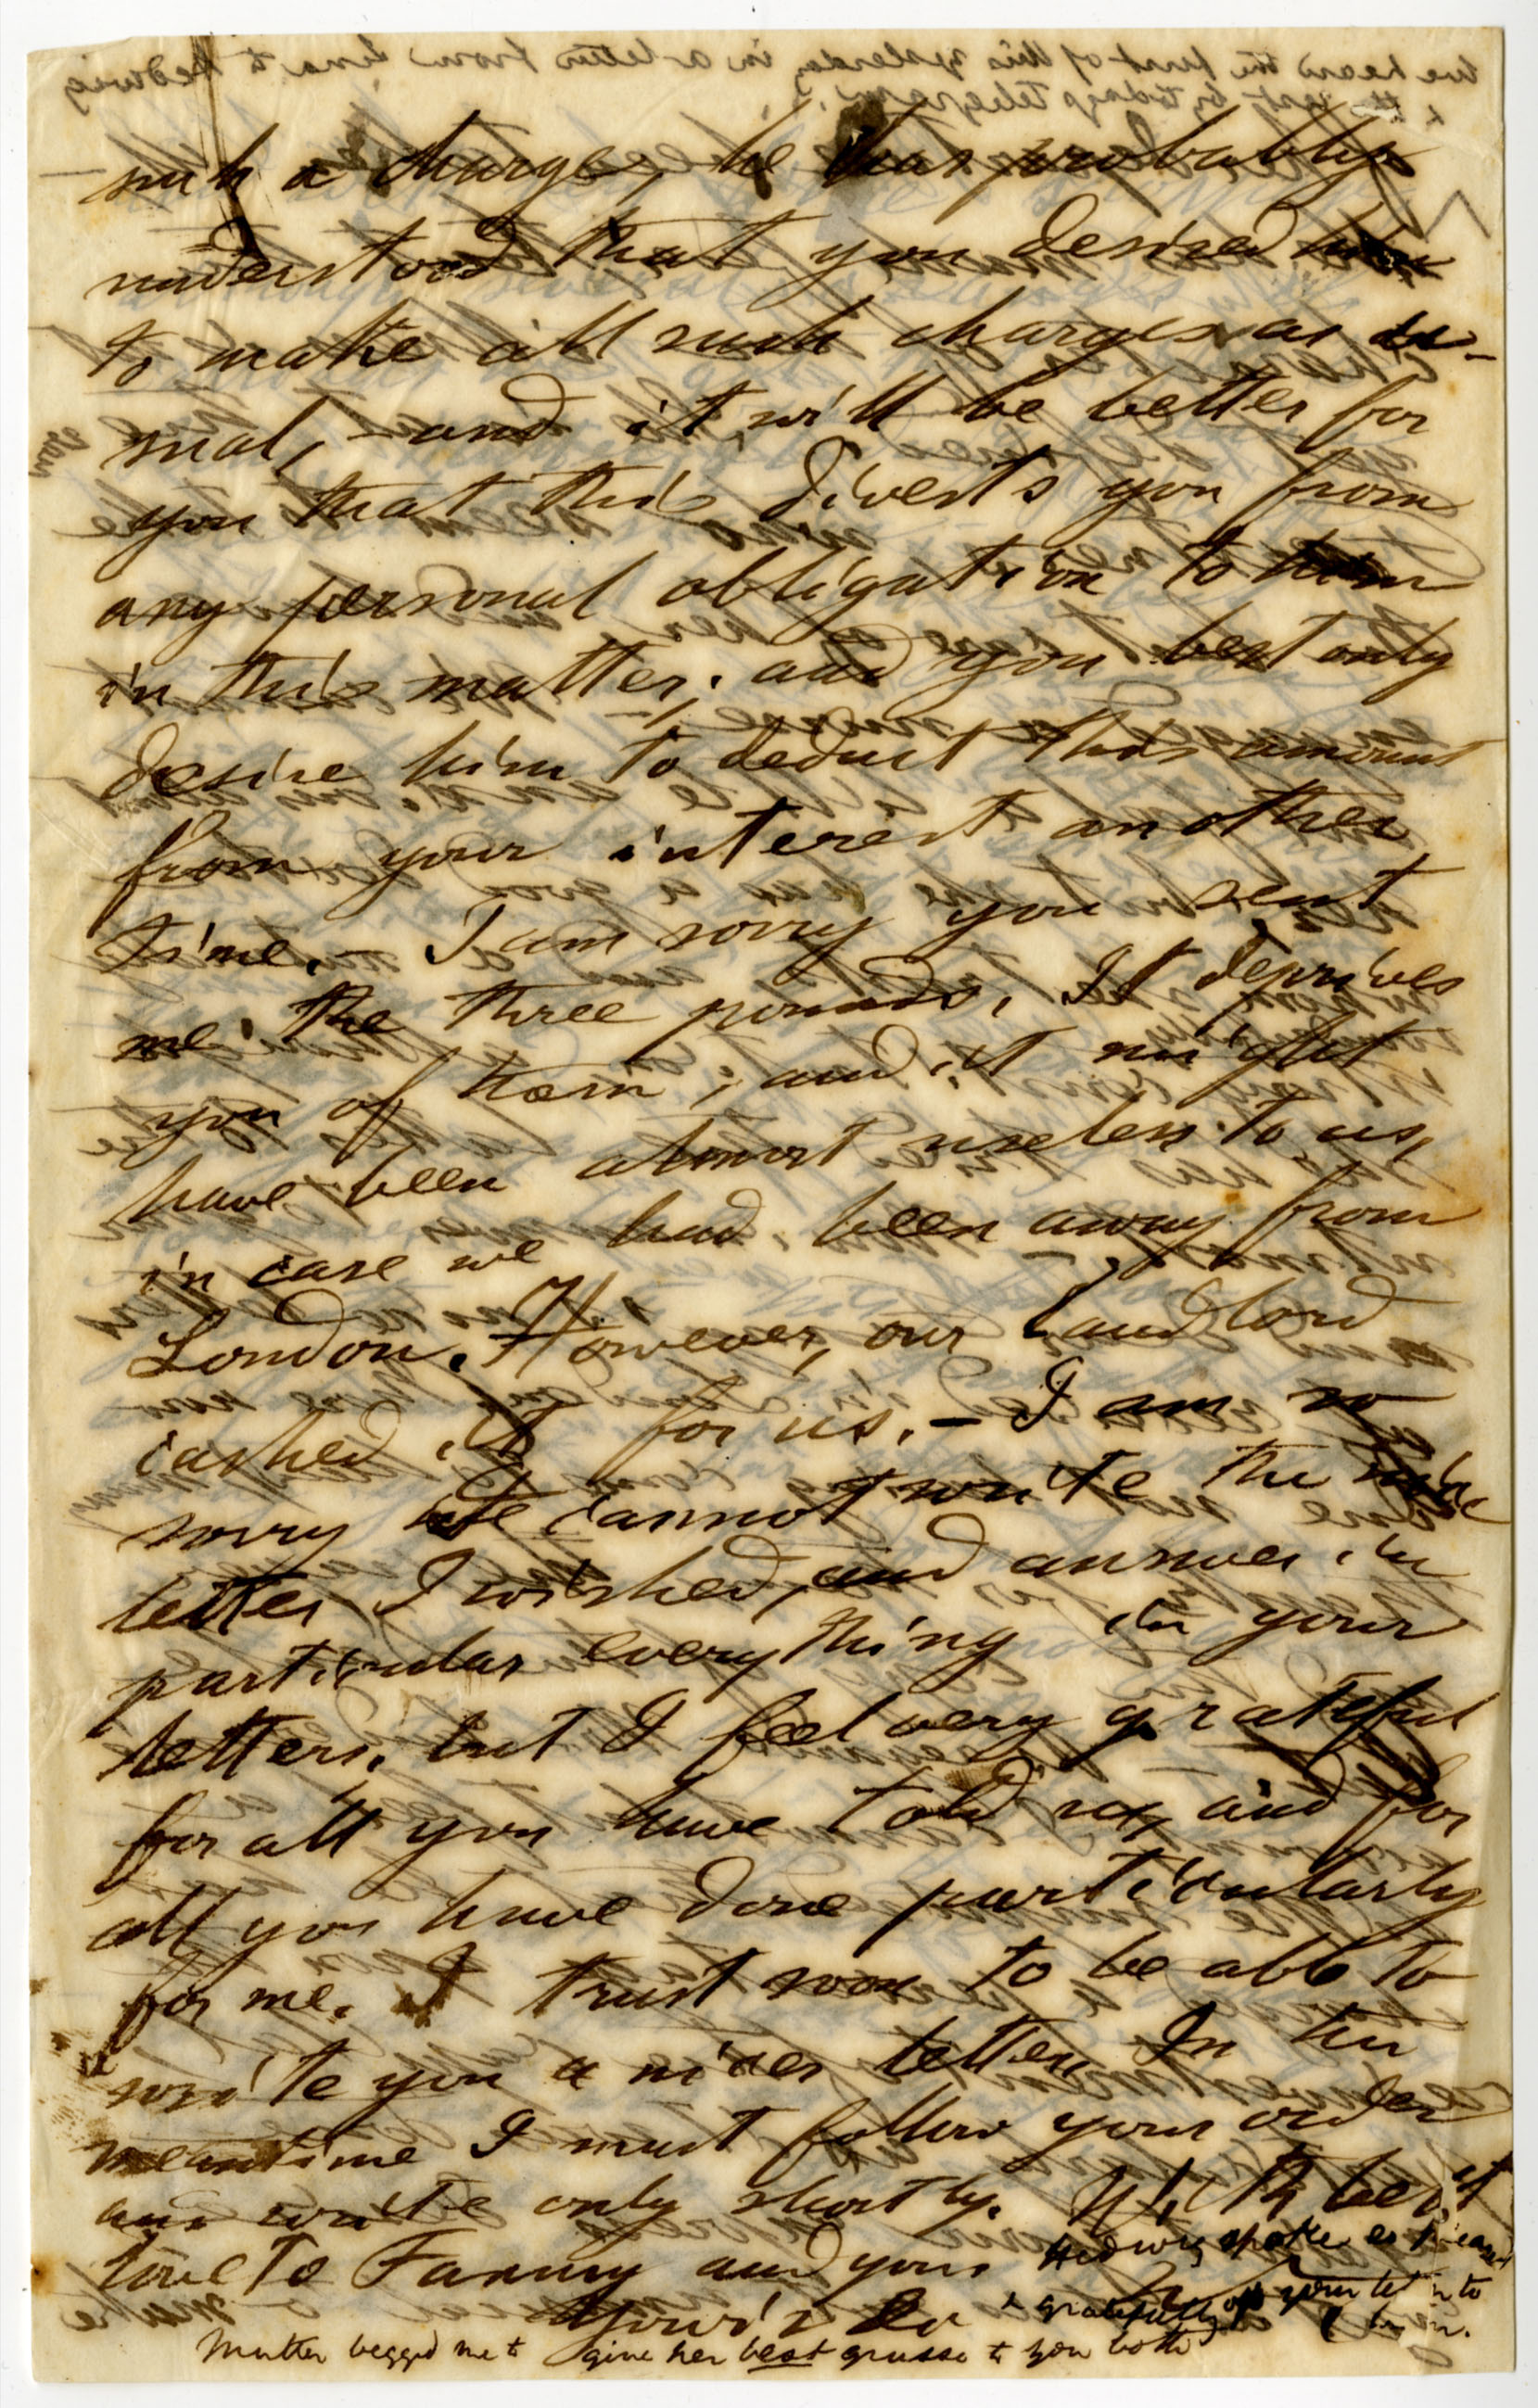 such a charge, he has probably
understood that you desired him
to make all such charges as us-
ual, - and it will be better for
you that this divests you from
any personal obligation to him
in this matter; and you best only
desire him to deduct this amount
from your interest another
time. - I am sorry you sent
me the three pounds. It deprives
you of them; and it might
have been almost useless to us,
in case we had been away from
London. However, our landlord
cashed it for us. - I am so
sorry I cannot write the nice
letter I wished, and answer in
particular everything in your
letters, but I feel very grateful
for all you have told us, and for
all you have done particularly
for me. I trust soon to be able to
write you a nicer letter. In the
meantime I must follow your order
and write only shortly. With best
love to Fanny and you
Yours
Hedwig spoke so pleased
& gratefully of your letter to
Mutter begged me to give her best grusse to you both
We heard the first of this yesterday in a letter from Lina to Hedwig
& the rest by today's telegram.